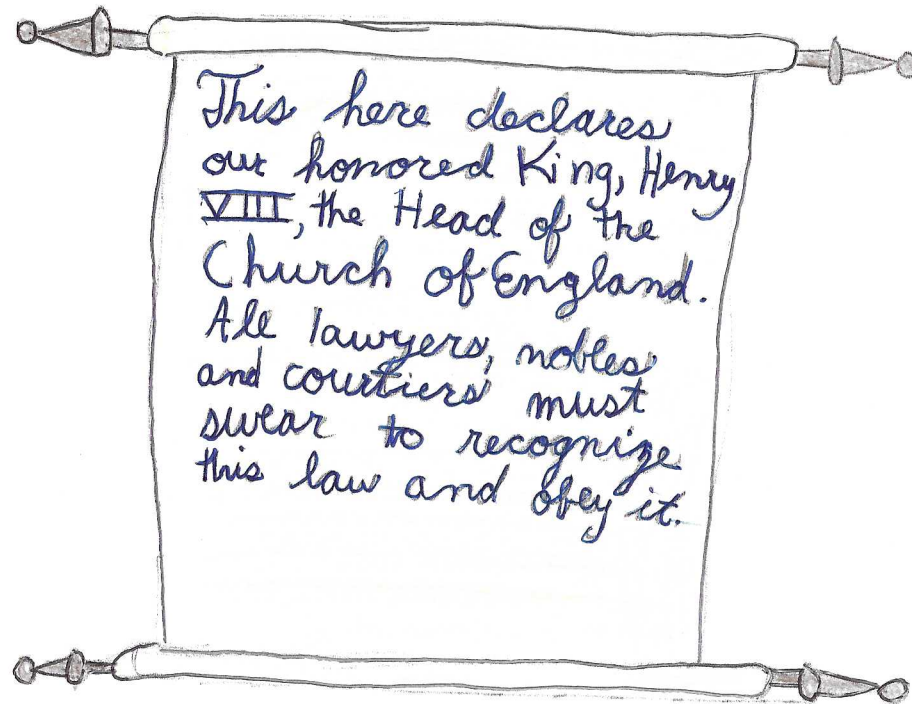 This here declares
our honored King, Henry
VIII, the Head of the
Church of England.
All lawyers, nobles
and courtiers must
swear to recognize
this law and obey it.